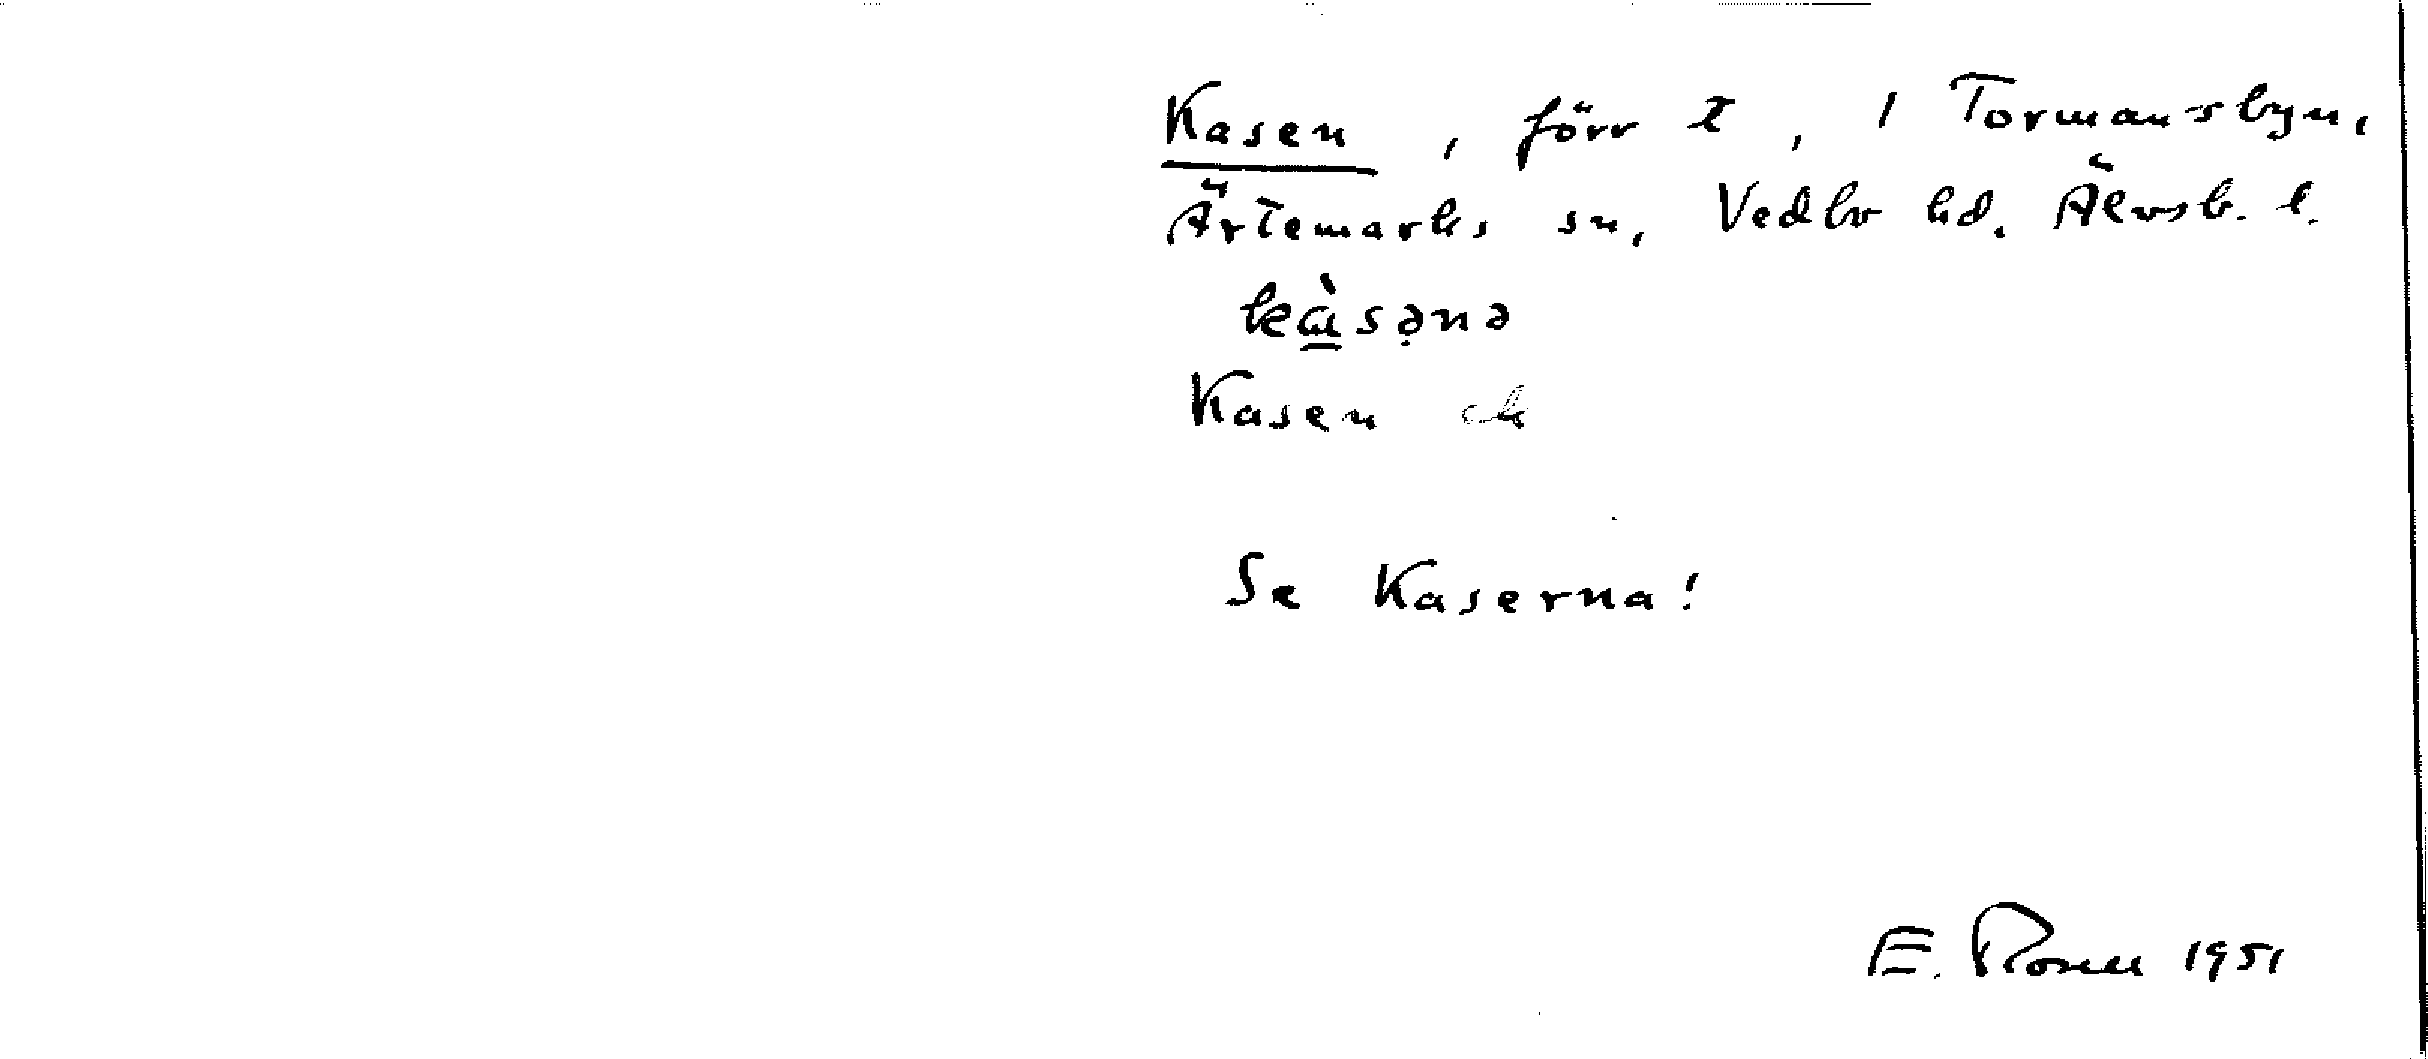 Kasen, förr t, i Tormansbyn,
Ärtemarks sn, Vedbo hd. Älvsb. l.
kàsənə
Kasen ek
Se Kaserna!
E. Rosell 1951